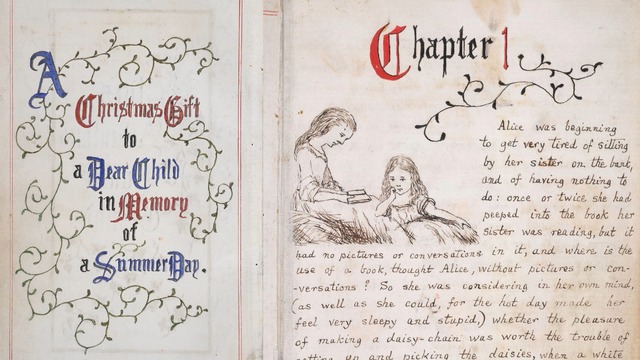 A
Christmas Gift
to
a Dear Child
in Memory
of
a Summer Day.
Chapter 1
Alice was beginning
to get very tired of sitting
by her sister on the bank,
and of having nothing to
do: once or twice she had
peeped into the book her
sister was reading, but it
had no pictures or conversations in it, and where is the
use of a book, thought Alice, without pictures or con-
-versations? So she was considering in her own mind,
(as well as she could, for the hot day made her
feel very sleepy and stupid,) whether the pleasure
of making a daisy-chain was worth the trouble of
getting up and picking the daisies, when a white